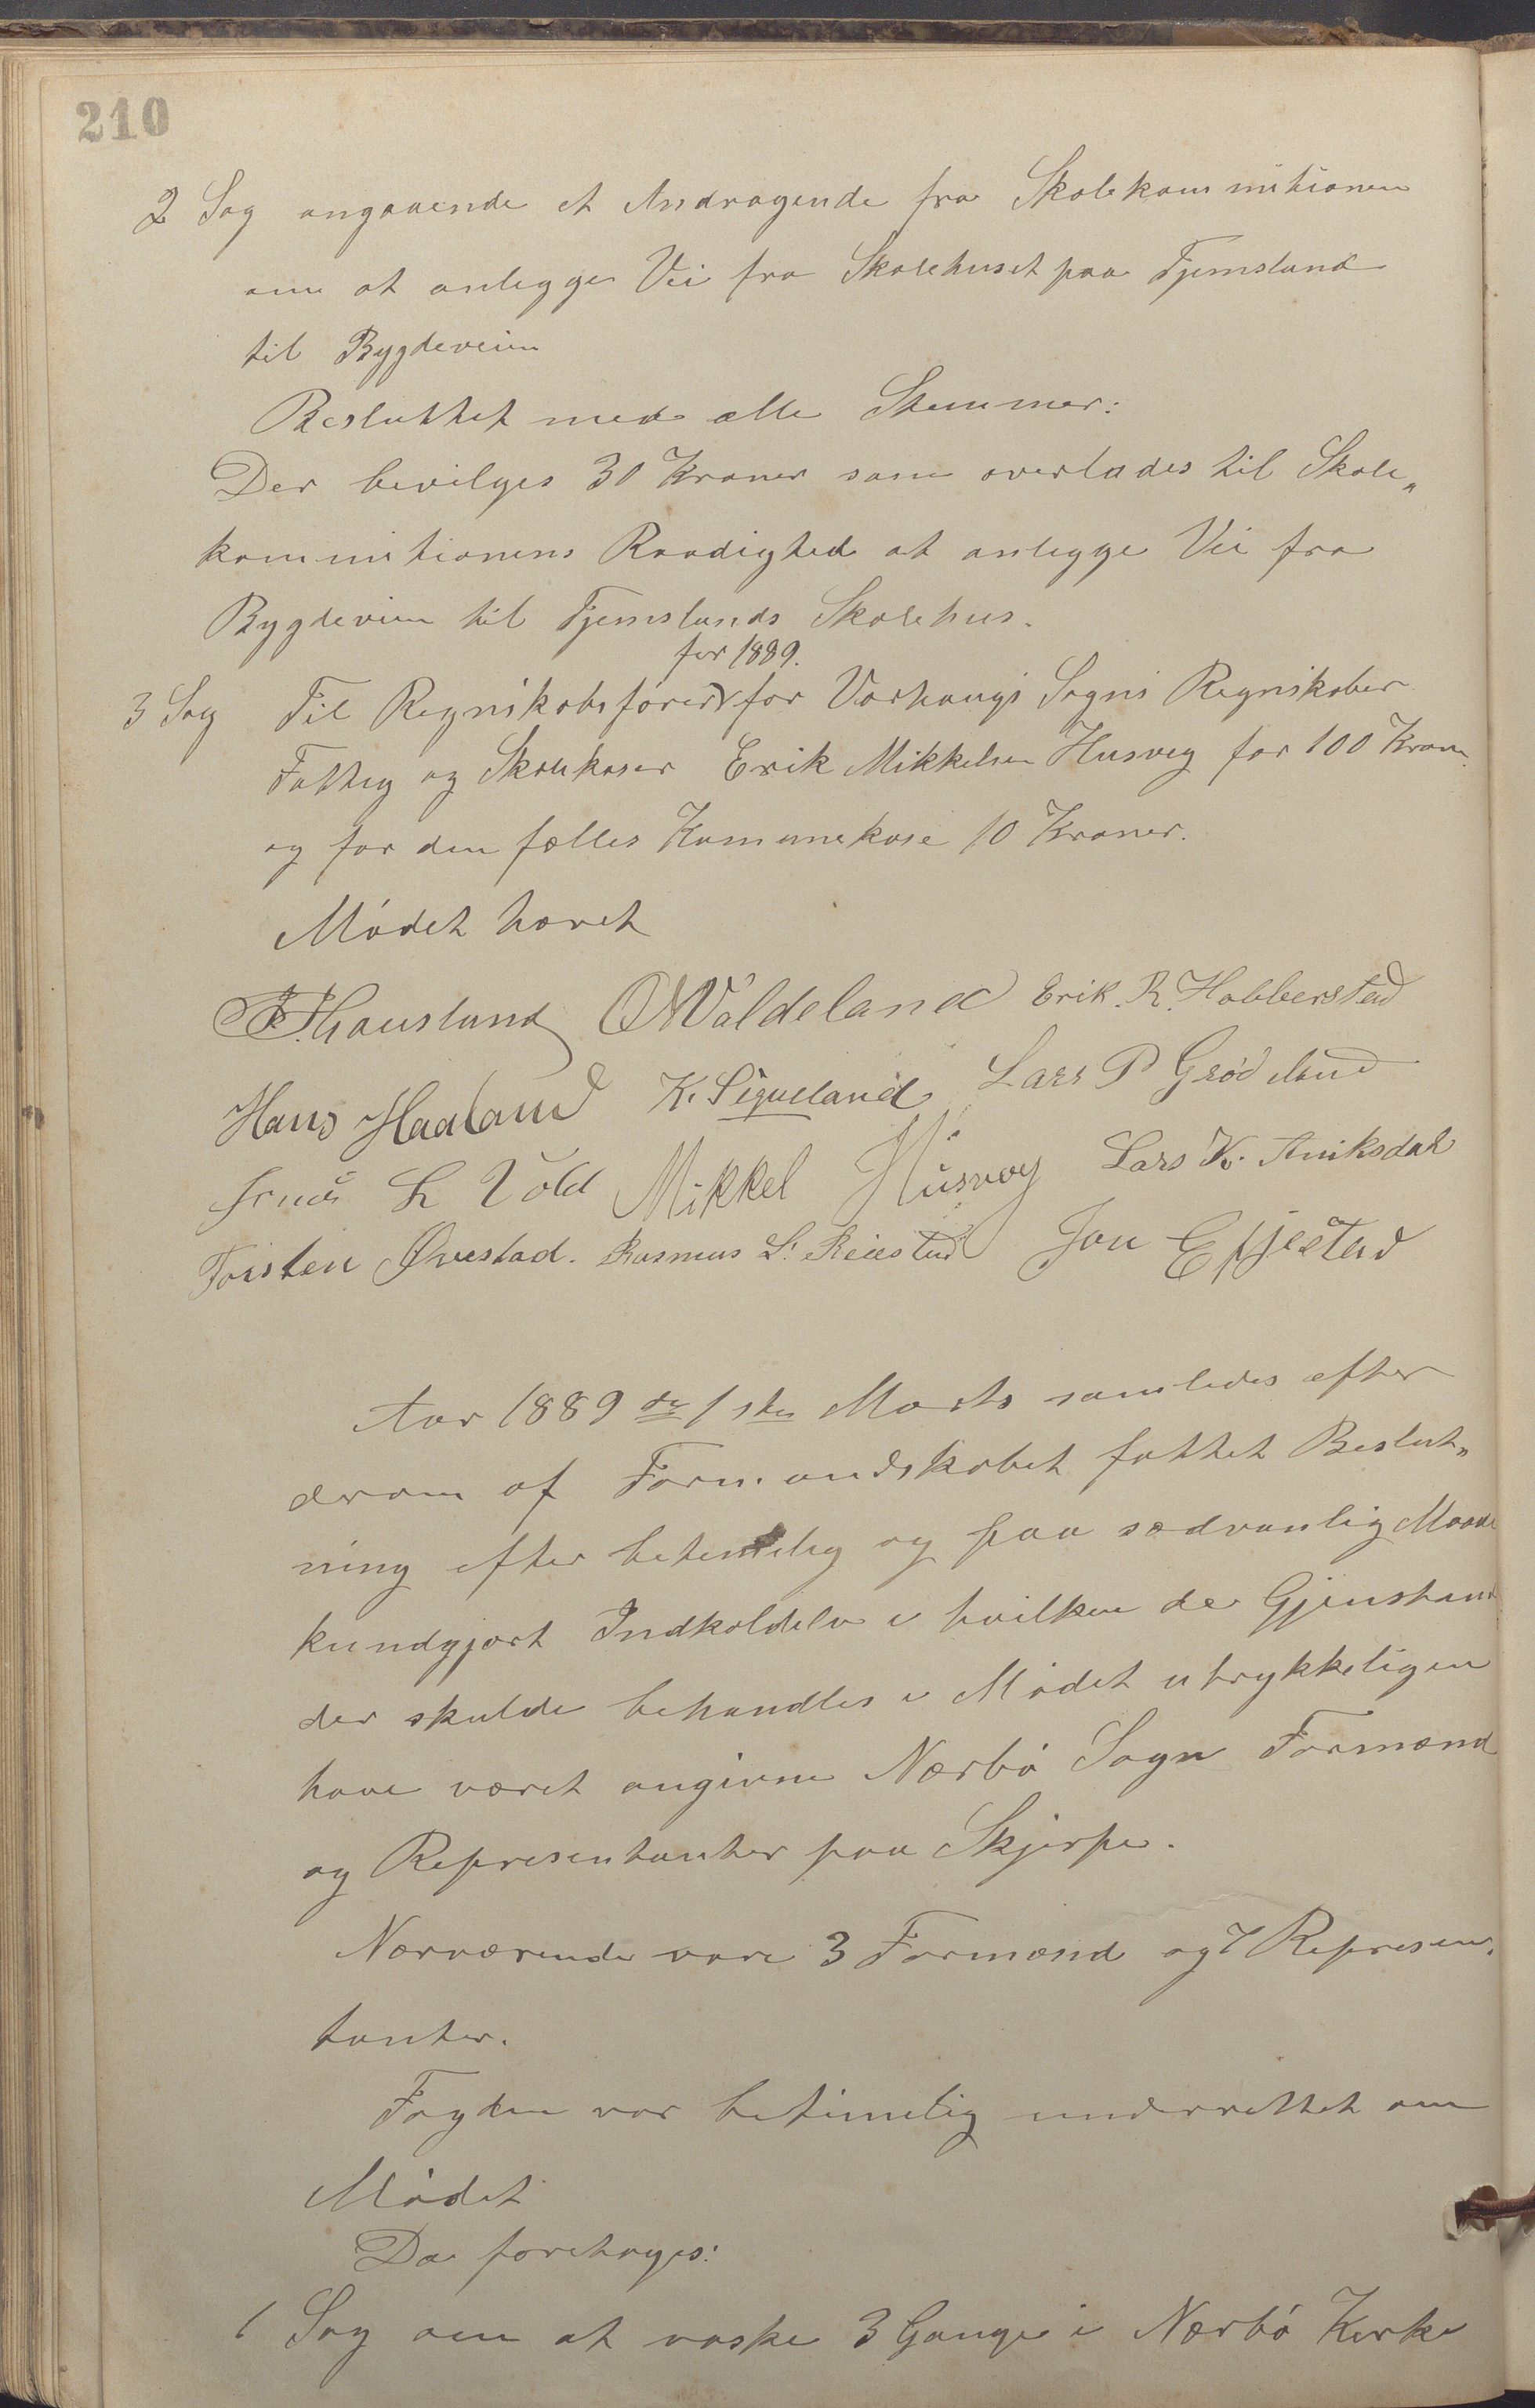 210
2 Sag angaaende et Andragende fra Skolekommitionen
om at anlegge Vei fra Skolehuset paa Fjemsland
til Bygdeveien
Besluttet med alle Stemmer:
Der bevilges 30 Kroner som overlades til Skole„
kommitionens Raadighed at anlegge Vei fra
Bygdeveien til Fjemslands Skolehus.
for 1889.
3 Sag Til Regnskabsfører for Varhougs Sogns Regnskaber
Fattig og Skolekaser Erik Mikkelsen Husveg for 100 Kron.
og for den fælles Kommunekase 10 Kroner.
Mødet hævet
Thousland O W Valdeland Erik. R. Hobberstad
Hans Haaland K. Sigveland Lars P Grødeland
L Vold Mikkel Husvoy Lars K. Aniksdal
Torsten Øvestad. Rasmus S. Reiestad Jon Efjestad
Aar 1889 den 1ste Marts samledes efter
derom af Formandskabet fattet Beslut„
ning efter betimelig og paa sædvanlig Maade
kundgjort Indkaldelse i hvilken de Gjenstand
der skulde behandles i Mødet utrykkeligen
have været angivne Nærbø Sogn Formænd
og Representanter paa Skjerpe.
Nærværende vare 3 Formænd og 7 Represen„
tanter.
Fogden var betimelig underrettet om
Mødet
Da foretoges:
1 Sag om at vaske 3 Gange i Nærbø Kirke